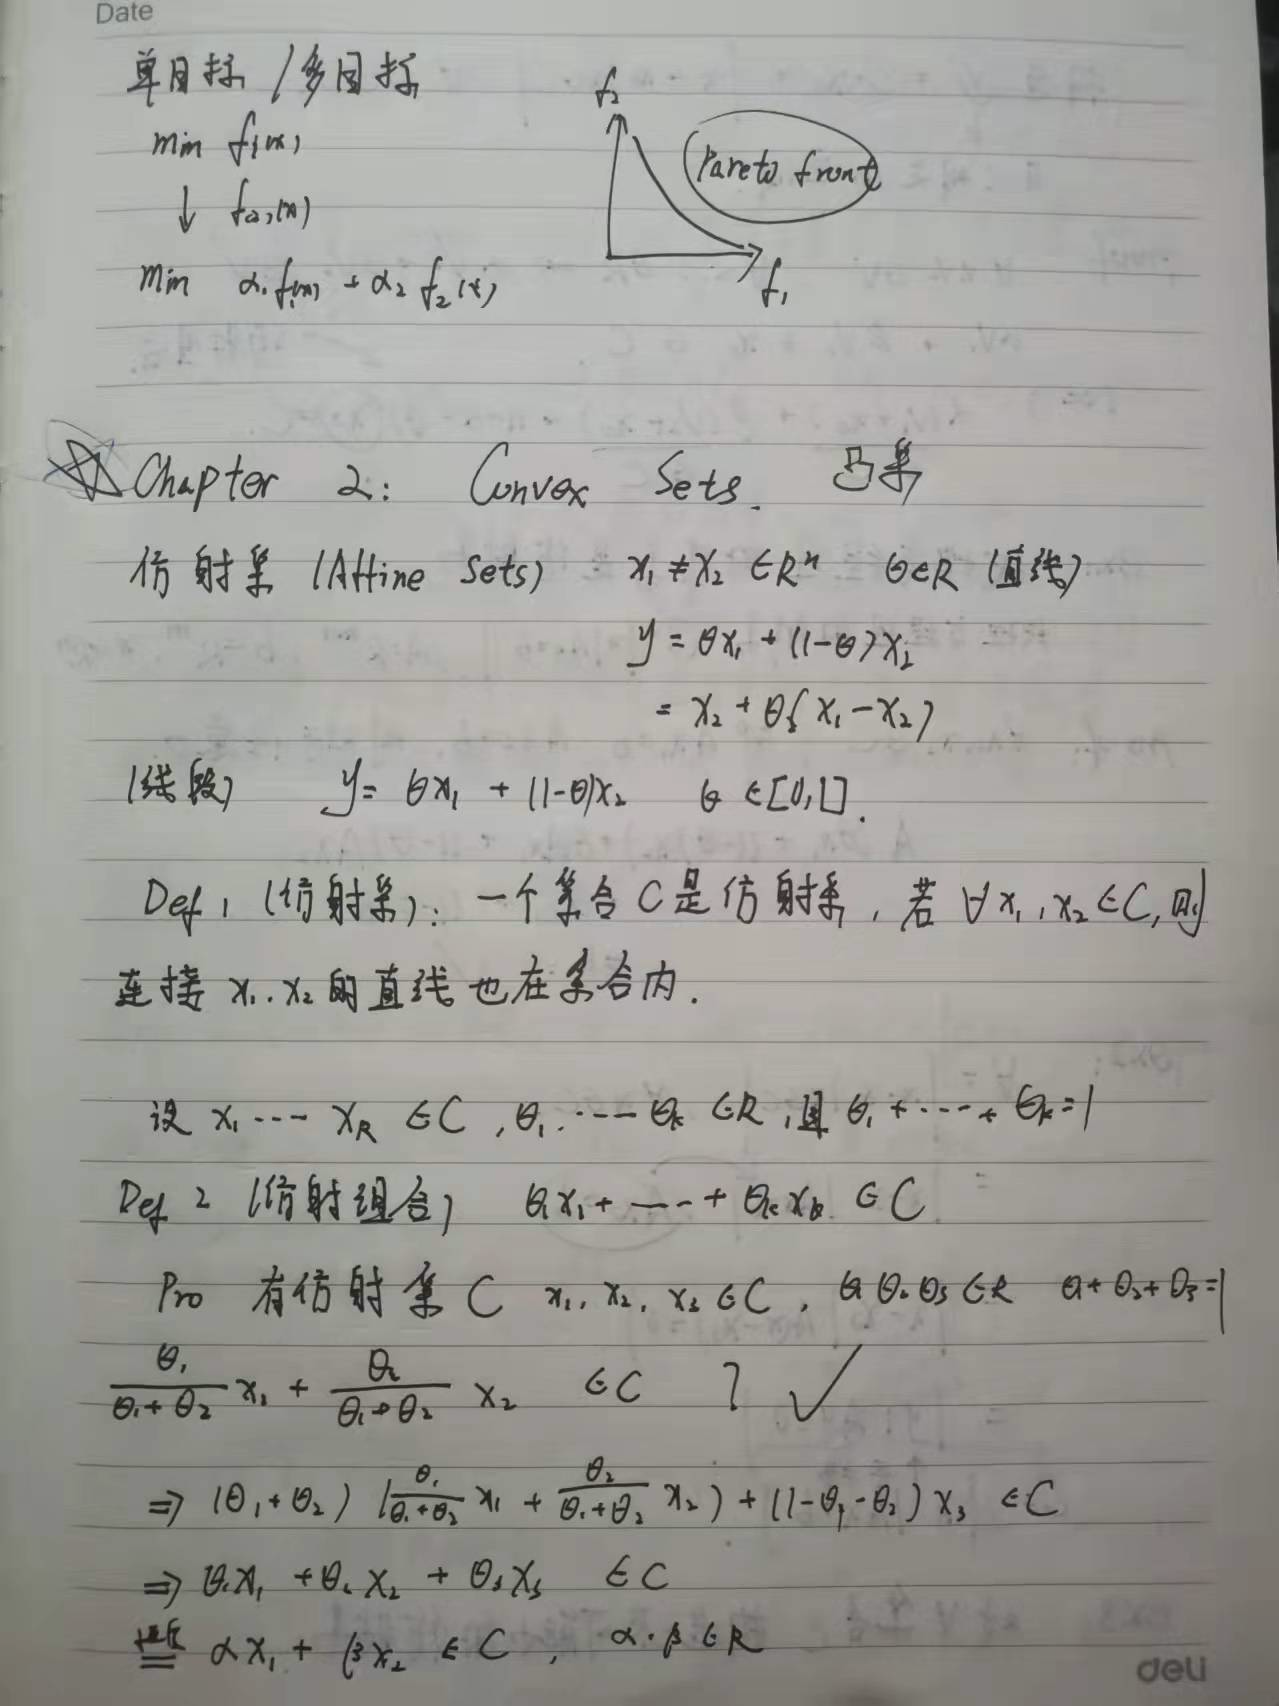 Date
单目标 / 多目标
min f₁(x)
↓ f₂(x)
min α₁f₁(x) + α₂ f₂(x)
f₂
Pareto front
f₁
Chapter 2: Convex Sets. 凸集
仿射集 (Affine Sets) x₁ ≠ x₂ ∈ Rⁿ θ∈R (直线)
y = θx₁ + (1-θ)x₂
= x₂ + θ(x₁ - x₂)
(线段) y = θx₁ + (1-θ)x₂ θ ∈ [0,1].
Def 1 (仿射集): 一个集合C是仿射集, 若 ∀x₁, x₂ ∈ C, 则
连接 x₁. x₂ 的直线也在集合内.
设 x₁ ---- x_k ∈ C, θ₁. ---- θ_k ∈ R, 且 θ₁ + ---- + θ_k = 1
Def 2 (仿射组合) θ₁x₁ + ---- + θ_k x_k ∈ C
Pro 有仿射集 C x₁, x₂, x₃ ∈ C, θ₁ θ₂ θ₃ ∈ R θ₁ + θ₂ + θ₃ = 1
θ₁/(θ₁+θ₂) x₁ + θ₂/(θ₁+θ₂) x₂ ∈ C ? ✓
⇒ (θ₁+θ₂) (θ₁/(θ₁+θ₂) x₁ + θ₂/(θ₁+θ₂) x₂) + (1-θ₁-θ₂) x₃ ∈ C
⇒ θ₁x₁ + θ₂x₂ + θ₃x₃ ∈ C
αx₁ + βx₂ ∈ C, α. β ∈ R
deli